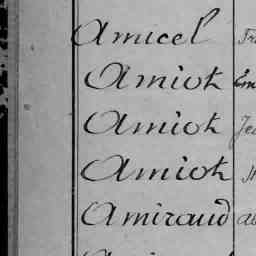 Amicel
Amiot
Amiot
Amiot
Amiraud